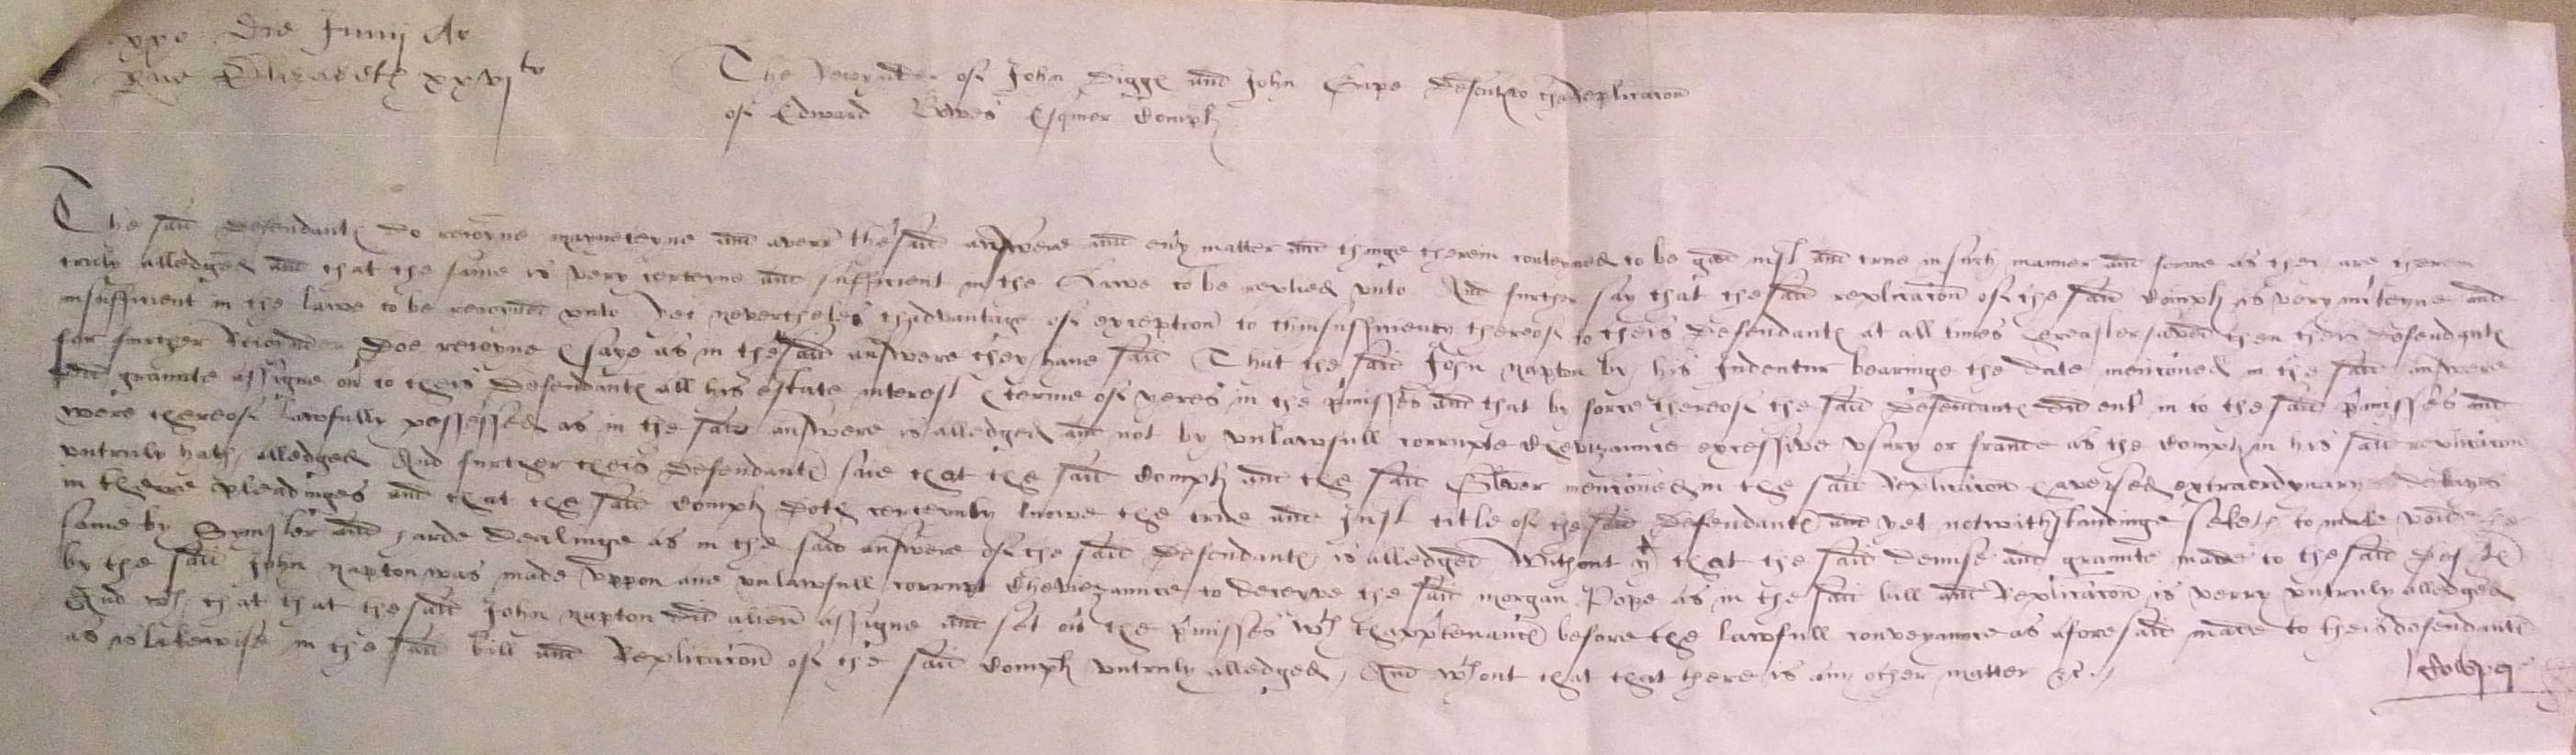 xxo die Junij Ao
Rne Elizabeth xxvjto
The Reioynder of John Digges and John Cripe Defendtes to the Replicacion
of Edward Bowes Esquier Complt
The said Defendantes do reioyne mayneteyne and averr the said answere and eu'y matter and thinge therein conteyned to be good iust and true in such manner and forme as thei are therein
truly alledged and that the same is very certeyne and sufficient in the Lawe to be replied vnto And further say that the said replicacion of the said Complt is very incerteyne and
insufficient in the lawe to be reioyned vnto Yet neverthelesse thadvantage of exception to thinsufficiency thereof to theis Defendantes at all times hereafter saved then theis defendantes
for further Reioynder Doe reioyne & saye as in the said answere they have said That the said John Napton by his Indentur bearinge the date mencioned in the said answere
did graunte assigne ou' to theis Defendantes all his estate interest & terme of yeres in the p'misses and that by force thereof the said Defendantes did ent' in to the said p'misses and
were thereof lawfully possessed as in the said answere is alledged and not by vnlawfull corrupte Chevizaunce excessive vsury or fraude as the Complt in his said replicacion
vntruly hath alledged And further theis Defendantes saie that the said Complt and the said mencioned in the said Replicacion extraordynary delayes
in theire pleadinges and that the said Complt doth certeynly knowe the true and Just title of the said Defendantes and yet notwithstandinge seketh to make voide the
same by Synister and harde dealinge as in the said answere of the said Defendantes is alledged Without that that the said demise and graunte made to the said Deftes
by the said John Napton was made vppon ane vnlawfull corrupt Cheviezaunce to deceyve the said Morgan Pope as in the said bill and Replicacion is verry vntruly alledged
And wth that that the said John Napton did alien assigne and set ou' the p'misses wth thapp'tenances before the lawfull conveyaunce as aforesaid made to theis defendantes
as is likewise in the said bill and Replicacion of the said Complt vntruly alledged, And wthout that that there is any other matter &c.